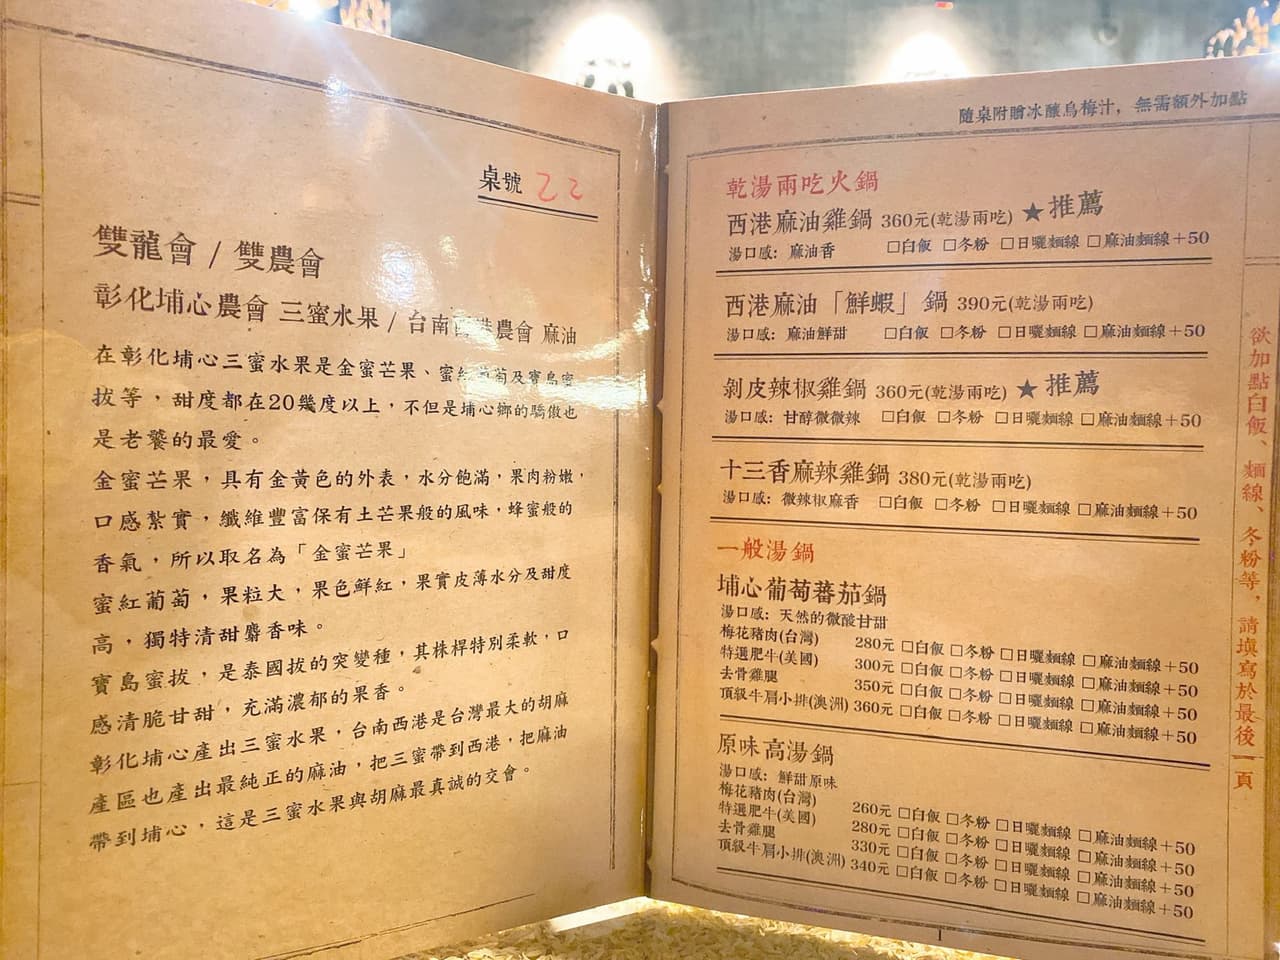 桌號 22
雙龍會 / 雙農會
彰化埔心農會 三蜜水果 / 台南西港農會 麻油
在彰化埔心三蜜水果是金蜜芒果、蜜紅葡萄及寶島蜜
拔等，甜度都在20幾度以上，不但是埔心鄉的驕傲也
是老饕的最愛。
金蜜芒果，具有金黃色的外表，水分飽滿，果肉粉嫩，
口感紮實，纖維豐富保有土芒果般的風味，蜂蜜般的
香氣，所以取名為「金蜜芒果」
蜜紅葡萄，果粒大，果色鮮紅，果實皮薄水分及甜度
高，獨特清甜麝香味。
寶島蜜拔，是泰國拔的突變種，其株桿特別柔軟，口
感清脆甘甜，充滿濃郁的果香。
彰化埔心產出三蜜水果，台南西港是台灣最大的胡麻
產區也產出最純正的麻油，把三蜜帶到西港，把麻油
帶到埔心，這是三蜜水果與胡麻最真誠的交會。
隨桌附贈冰釀烏梅汁，無需額外加點
乾湯兩吃火鍋
西港麻油雞鍋 360元(乾湯兩吃) ★推薦
湯口感：麻油香 □白飯 □冬粉 □日曬麵線 □麻油麵線＋50
西港麻油「鮮蝦」鍋 390元(乾湯兩吃)
湯口感：麻油鮮甜 □白飯 □冬粉 □日曬麵線 □麻油麵線＋50
剝皮辣椒雞鍋 360元(乾湯兩吃) ★推薦
湯口感：甘醇微微辣 □白飯 □冬粉 □日曬麵線 □麻油麵線＋50
十三香麻辣雞鍋 380元(乾湯兩吃)
湯口感：微辣椒麻香 □白飯 □冬粉 □日曬麵線 □麻油麵線＋50
一般湯鍋
埔心葡萄蕃茄鍋
湯口感：天然的微酸甘甜
梅花豬肉(台灣) 280元 □白飯 □冬粉 □日曬麵線 □麻油麵線＋50
特選肥牛(美國) 300元 □白飯 □冬粉 □日曬麵線 □麻油麵線＋50
去骨雞腿 350元 □白飯 □冬粉 □日曬麵線 □麻油麵線＋50
頂級牛肩小排(澳洲) 360元 □白飯 □冬粉 □日曬麵線 □麻油麵線＋50
原味高湯鍋
湯口感：鮮甜原味
梅花豬肉(台灣) 260元 □白飯 □冬粉 □日曬麵線 □麻油麵線＋50
特選肥牛(美國) 280元 □白飯 □冬粉 □日曬麵線 □麻油麵線＋50
去骨雞腿 330元 □白飯 □冬粉 □日曬麵線 □麻油麵線＋50
頂級牛肩小排(澳洲) 340元 □白飯 □冬粉 □日曬麵線 □麻油麵線＋50
欲加點白飯、麵線、冬粉等，請填寫於最後一頁
1